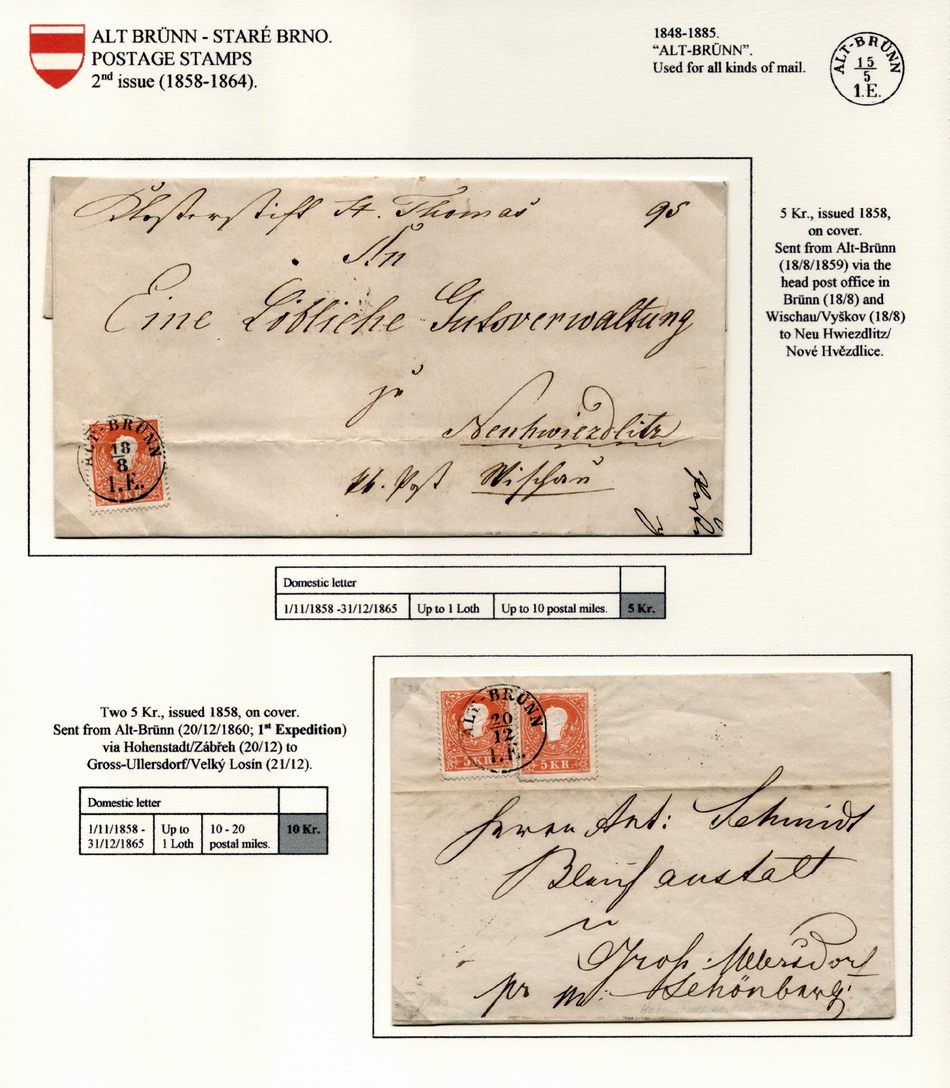 ALT BRÜNN - STARÉ BRNO.
POSTAGE STAMPS
2nd issue (1858-1864).
1848-1885.
“ALT-BRÜNN”.
Used for all kinds of mail.
ALT-BRÜNN
15
5
1.E.
Klosterstift St. Thomas 95
An
Eine Löbliche Gutsverwaltung
zu
Neuhwiezdlitz
Post Wischau
ALT-BRÜNN
18
8
1.E.
5 KR.
5 Kr., issued 1858,
on cover.
Sent from Alt-Brünn
(18/8/1859) via the
head post office in
Brünn (18/8) and
Wischau/Vyškov (18/8)
to Neu Hwiezdlitz/
Nové Hvězdlice.
Domestic letter
1/11/1858 -31/12/1865 Up to 1 Loth Up to 10 postal miles. 5 Kr.
Two 5 Kr., issued 1858, on cover.
Sent from Alt-Brünn (20/12/1860; 1st Expedition)
via Hohenstadt/Zábřeh (20/12) to
Gross-Ullersdorf/Velký Losín (21/12).
Domestic letter
1/11/1858 - 31/12/1865 Up to 1 Loth 10 - 20 postal miles. 10 Kr.
ALT-BRÜNN
20
12
1.E.
5 KR. 5 KR.
Herrn Ant: Schmidt
Bleichanstalt
in
Groß: Ullersdorf
pr Schönberg